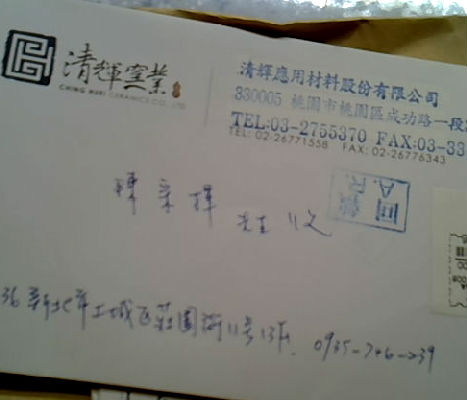 清輝窯業
CHING HUEI CERAMICS CO., LTD
清輝應用材料股份有限公司
330005 桃園市桃園區成功路一段
TEL:03-2755370 FAX:03-33
TEL: 02-26771558 FAX: 02-26776343
回執
A.R.
陳 輝 收
36新北市土城區莊園街11號13F 0935-746-239